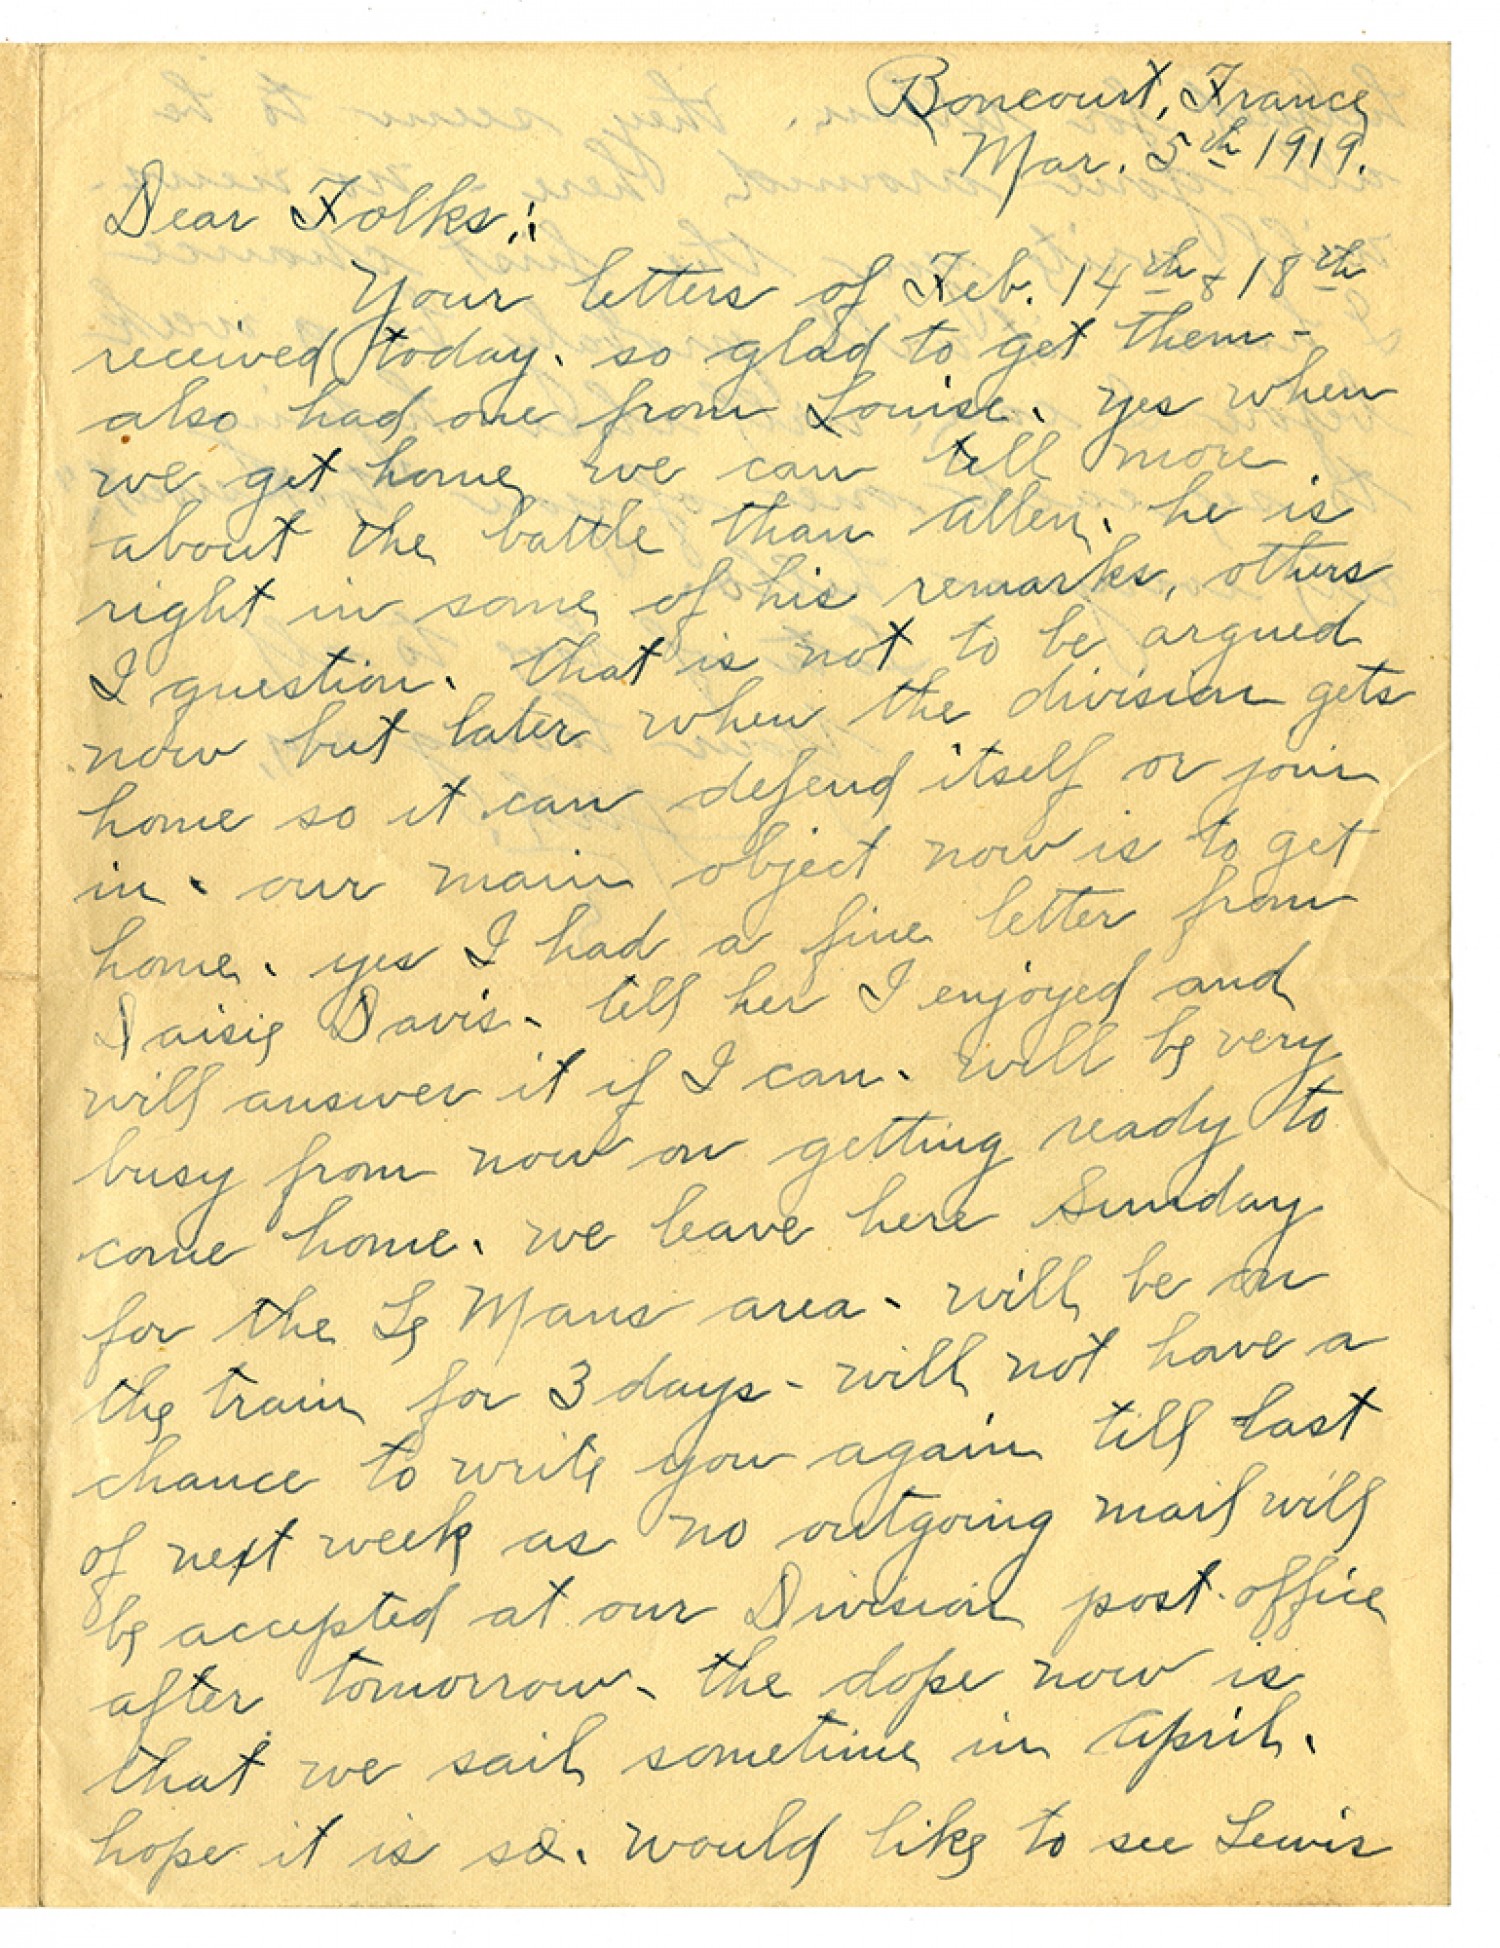 Boncourt, France
Mar. 5th 1919.
Dear Folks,:
Your letters of Feb. 14th & 18th
received today. so glad to get them -
also had one from Louise. yes when
we get home we can tell more
about the battle than Allen. he is
right in some of his remarks, others
I question. that is not to be argued
now but later when the division gets
home so it can defend itself or join
in. our main object now is to get
home. yes I had a fine letter from
Daisie Davis. tell her I enjoyed and
will answer it if I can. will be very
busy from now on getting ready to
come home. we leave here Sunday
for the Le Mans area. will be on
the train for 3 days - will not have a
chance to write you again till last
of next week as no outgoing mail will
be accepted at our Division post-office
after tomorrow. the dope now is
that we sail sometime in April.
hope it is so. would like to see Lewis